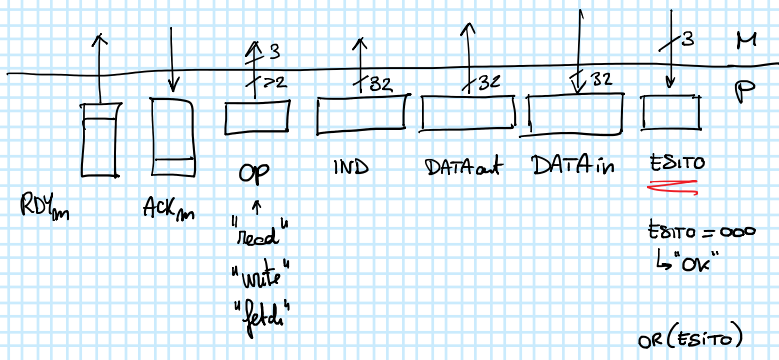 3
3
M
>2
32
32
32
P
RDYm
ACKm
OP
IND
DATAout
DATAin
ESITO
"read"
"write"
"fetch"
ESITO = 000
↳ "OK"
OR (ESITO)